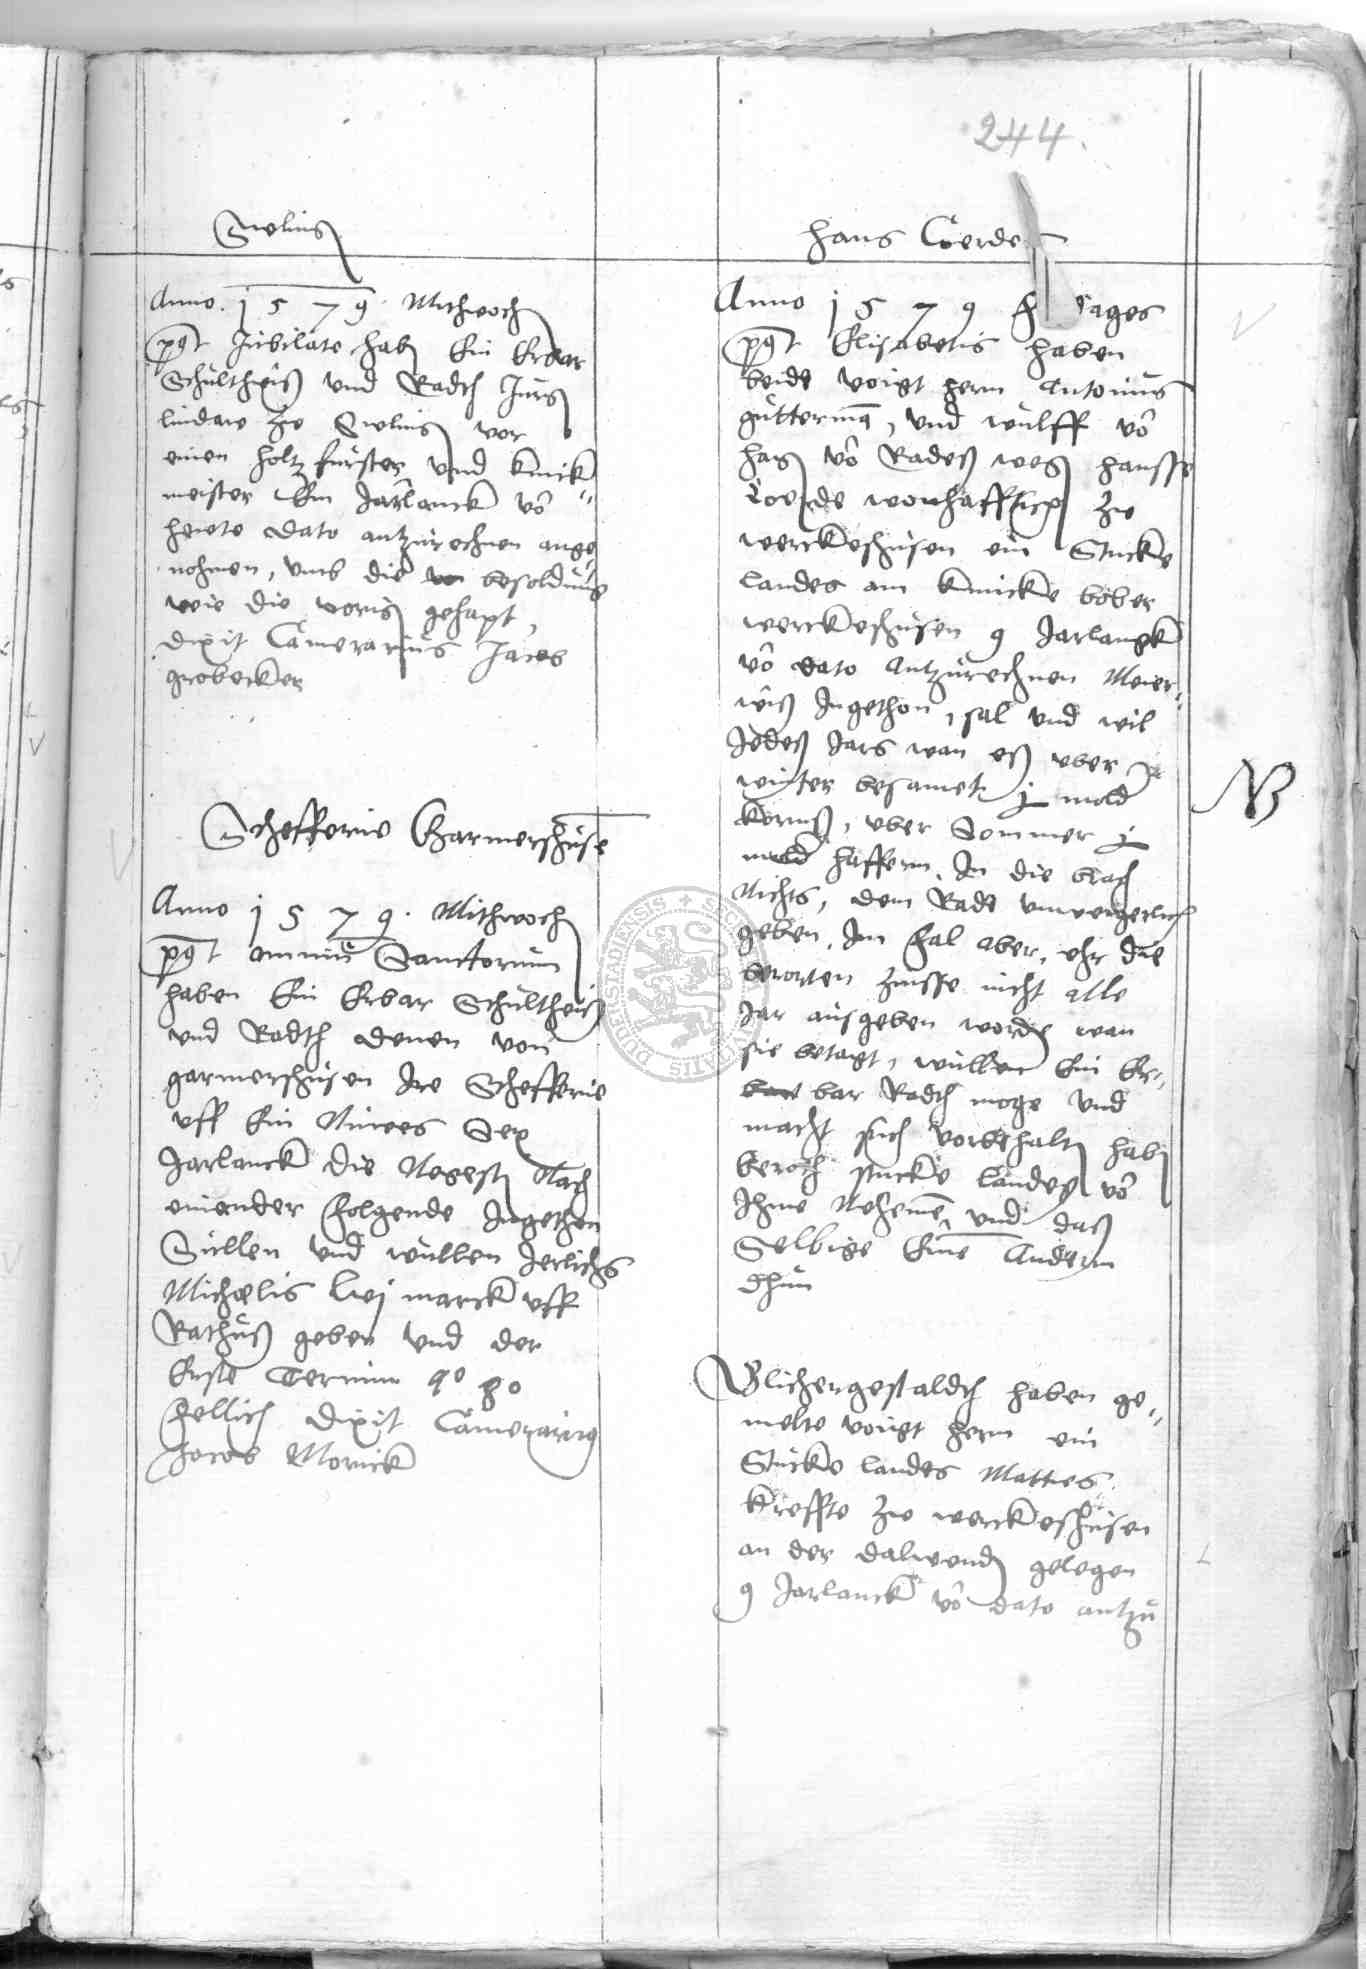 244.
Swlings
Anno. 1579. Mithwoch
post Jubilate hab Ein Erbar
Schultheiß und Radth Jurg
lindaw zw Swlings vor
einen holtzfurster und knick
meister Ein Jarlanck vo
hewte dato antzurechnen ange
nohmen, umb die besoldung
wie die vorig gehapt,
dixit Camerarius Jacob
grobecker
Schefferie Garmershuse
Anno 1579. Mithwoch
post omniu Sanctorum
haben Ein Erbar Schultheiß
und Radth denen von
garmershusen Ire Schefferie
uff Ein Niwes Sex
Jarlanck die Negest Nach
einander folgende Ingethon
Sullen und wullen Jerlichs
Michaelis lvj marck uff
Rathuß geben und der
Erste Termin ao 80
fellich dixit Camerarius
Jacob Morick
Hans Coerdes
Anno 1579 tages
post Elisabetis haben
beide voigt hern Antonius
gutterma, und wulff vo
hag vo Radeß weg hansse
Coerde wonhafftich zw
werckeshusen ein Stucke
landes am knicke bober
werckeshusen 9 Jarlangk
vo dato Antzurechnen Meier-
wiß Ingethon, sal und wil
Jedeß Jars wan eß uber
winter besamet j mold
korns, uber Sommer j
mold haffern, In die brach
Nichts, dem Rade unweigerlich
geben, Im fal aber, ehr die
berorten zinsse nicht alle
Jar ausgeben worde wan
sie betagt, wullen Ein Er-
bar Radth moge und
macht sich vorbehalt hab
beroth stucke Landeß vo
Ihme Nehemen und daß
Selbige Eine Andern
dhun
NB
Glichergestaldth haben ge-
melte voigt hern ein
Stucke landes Matties
kreffte zw werckeshusen
an der dalwende gelegen
9 Jarlanck vo dato antzu
SECRETUM CIVITATIS DUDERSTADIENSIS